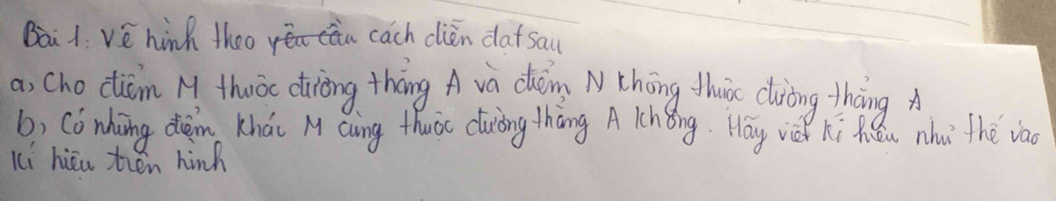 Bài 1: Vẽ hình theo yêu cầu cách diễn đạt sau
a, Cho điểm M thuộc đường thẳng A và điểm N không thuộc đường thẳng A
b, Có những điểm khác M cùng thuộc đường thẳng A không. Hãy viết kí hiệu như thế vào
kí hiệu trên hình